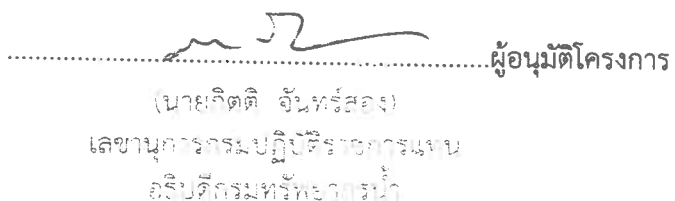 ผู้อนุมัติโครงการ
(นายกิตติ จันทร์สอง)
เลขานุการกรมปฏิบัติราชการแทน
อธิบดีกรมทรัพยากรน้ำ